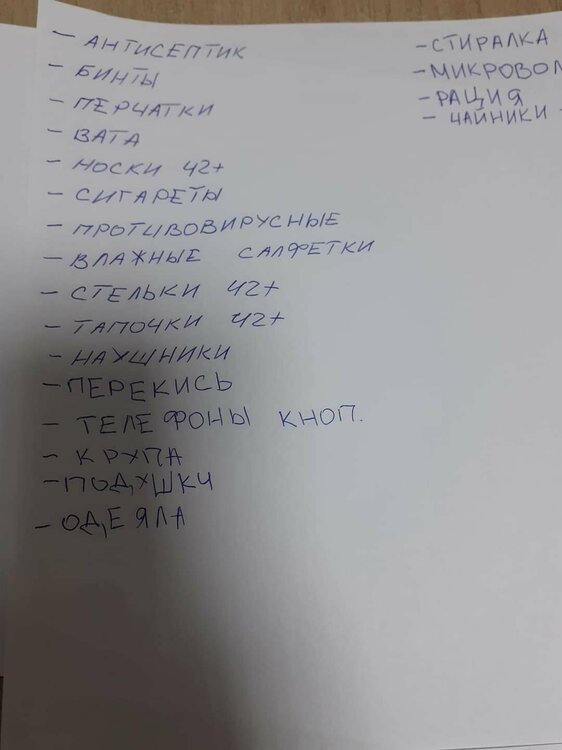 - АНТИСЕПТИК
- БИНТЫ
- ПЕРЧАТКИ
- ВАТА
- НОСКИ 42+
- СИГАРЕТЫ
- ПРОТИВОВИРУСНЫЕ
- ВЛАЖНЫЕ САЛФЕТКИ
- СТЕЛЬКИ 42+
- ТАПОЧКИ 42+
- НАУШНИКИ
- ПЕРЕКИСЬ
- ТЕЛЕФОНЫ КНОП.
- КРУПА
- ПОДУШКИ
- ОДЕЯЛА
- СТИРАЛКА
- МИКРОВОЛ
- РАЦИЯ
- ЧАЙНИКИ -